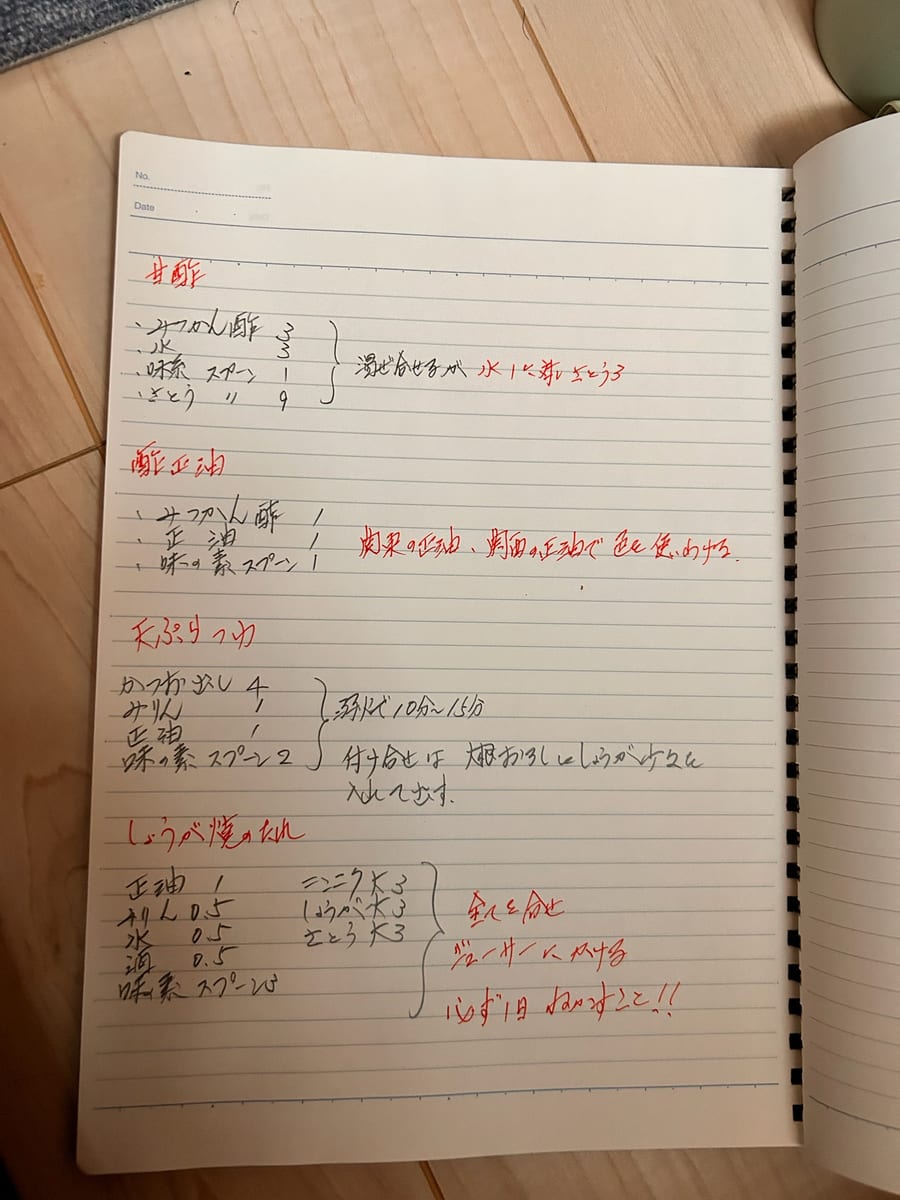 No.
Date
甘酢
・みつかん酢 3
・水 3
・味素 スプーン 1
・さとう 〃 9
混ぜ合せるが 水1に対しさとう3
酢正油
・みつかん酢 1
・正油 1
・味の素 スプーン 1
関東の正油、関西の正油で 色を使いわける.
天ぷらつゆ
かつお出し 4
みりん 1
正油 1
味の素 スプーン2
弱火で10分〜15分
付け合せは 大根おろしとしょうが少々を
入れて出す.
しょうが焼のたれ
正油 1
みりん 0.5
水 0.5
酒 0.5
味の素 スプーン3
ニンニク大3
しょうが大3
さとう大3
全てを合せ
ジューサーにかける
必ず1日 ねかすこと!!